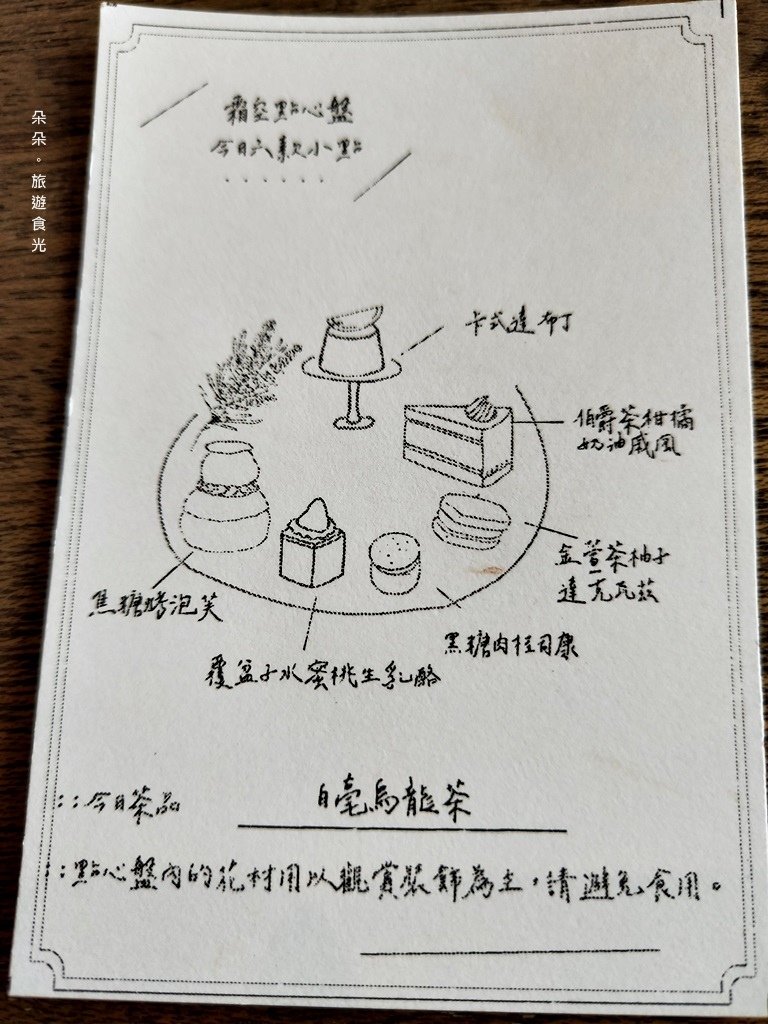 朵朵。旅遊食光
霜空點心盤
今日六款小點
卡式達布丁
伯爵茶柑橘
奶油戚風
金萱茶柚子
達克瓦茲
黑糖肉桂司康
覆盆子水蜜桃生乳酪
焦糖烤泡芙
::今日茶品 白毫烏龍茶
::點心盤內的花材用以觀賞裝飾為主,請避免食用。